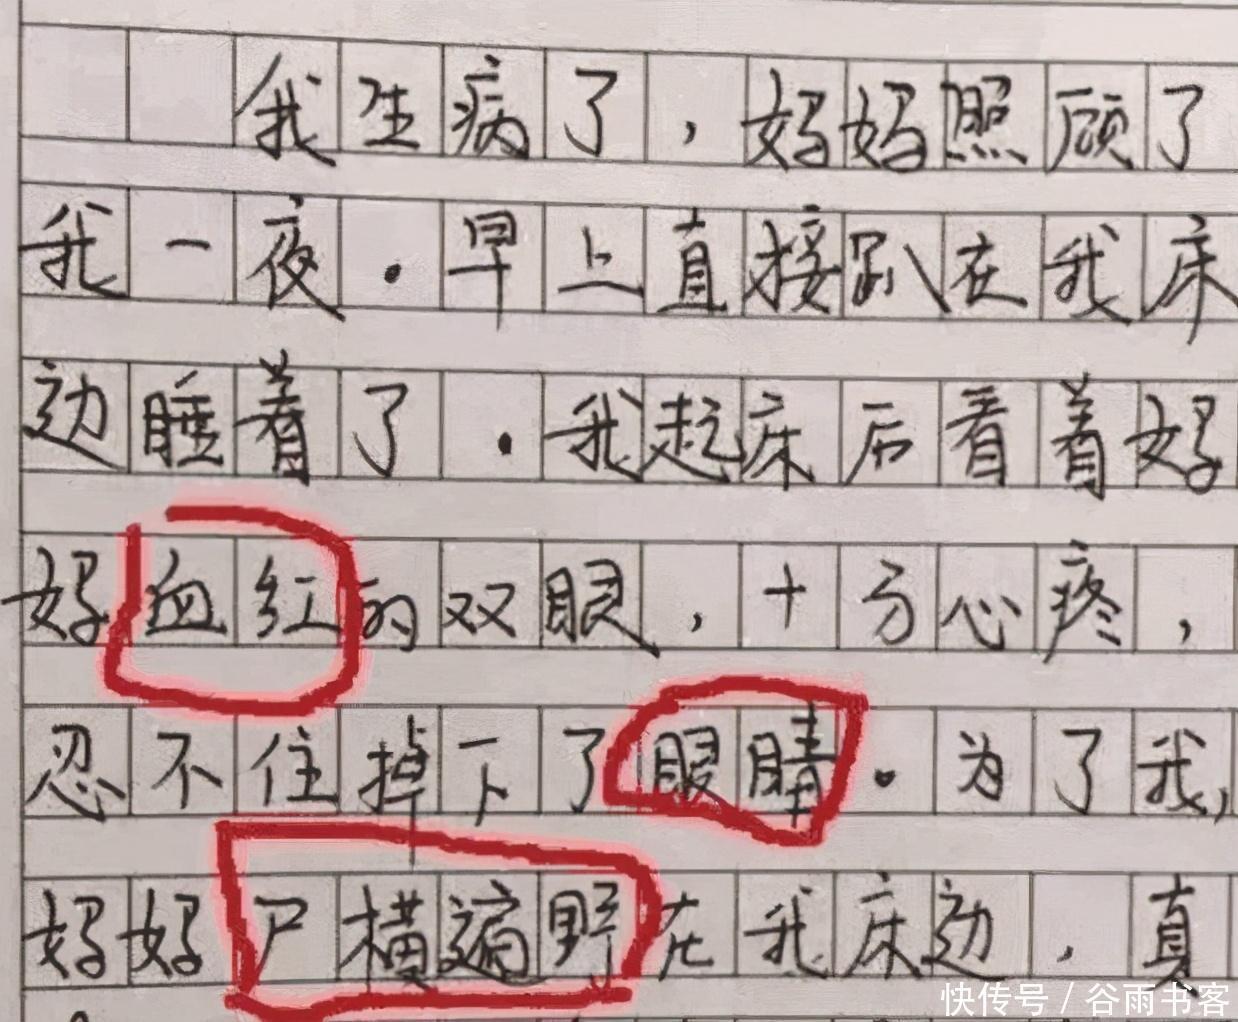 我生病了，妈妈照顾了
我一夜．早上直接趴在我床
边睡着了．我起床后看着好
好血红的双眼，十分心疼，
忍不住掉下了眼睛．为了我，
好好尸横遍野在我床边，真
快传号／谷雨书客